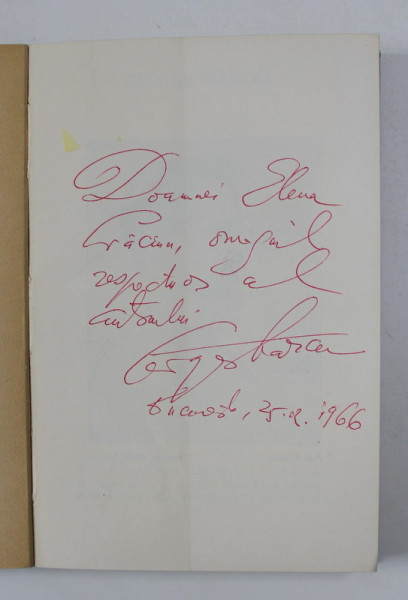 Doamnei Elena
Crăciun, omagiul
respectuos al
autorului
București, 25. 1966